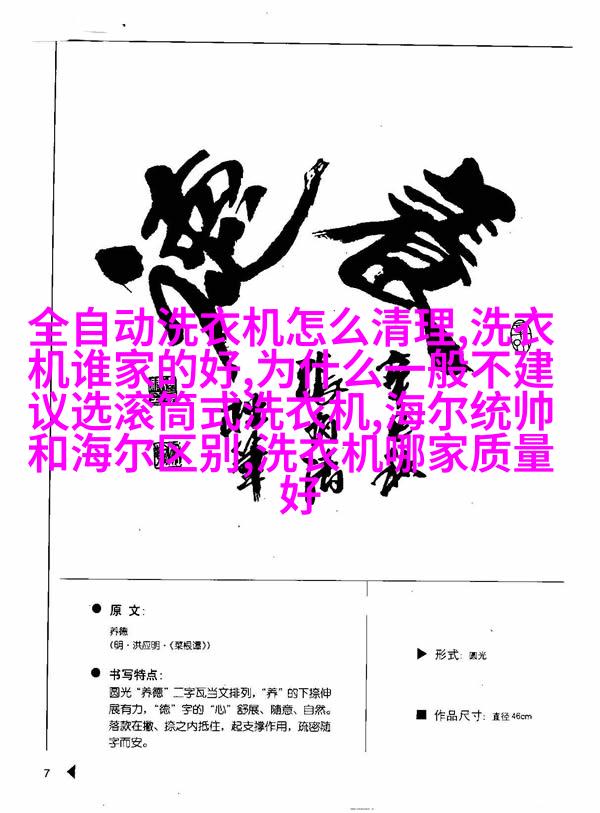 養德
全自动洗衣机怎么清理,洗衣
机谁家的好,为什么一般不建
议选滚筒式洗衣机,海尔统帅
和海尔区别,洗衣机哪家质量
好
● 原 文:
养德
(明·洪应明·《菜根谭》)
● 书写特点:
圆光“养德”二字瓦当文排列,“养”的下捺伸
展有力,“德”字的“心”舒展、随意、自然。
落款在撇、捺之内抵住,起支撑作用,疏密随
字而安。
▶ 形式: 圆光
■ 作品尺寸: 直径46cm
7 ◀